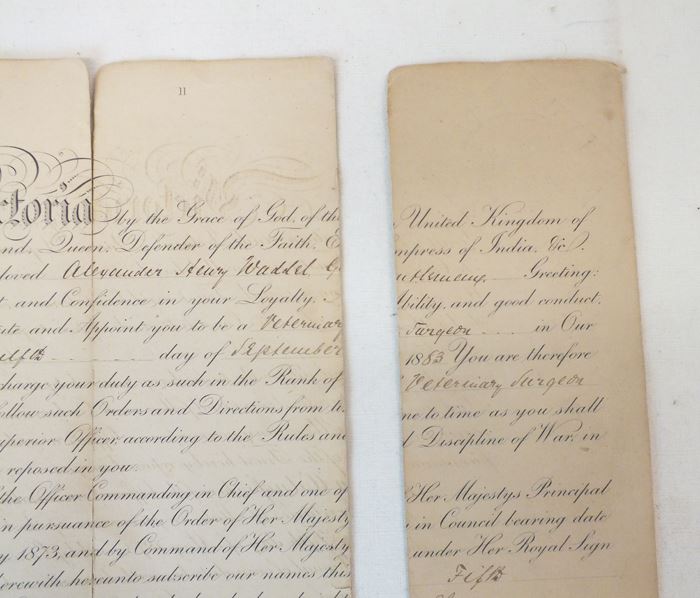 11
ctoria by the Grace of God, of the United Kingdom of
and, Queen, Defender of the Faith, Empress of India, &c.
loved Alexander Henry Waddel Gentleman Greeting:
t and Confidence in your Loyalty, Ability, and good conduct,
ute and Appoint you to be a Veterinary Surgeon in Our
elfth day of September 1883 You are therefore
charge your duty as such in the Rank of Veterinary Surgeon
ollow such Orders and Directions from time to time as you shall
uperior Officer, according to the Rules and Discipline of War, in
reposed in you.
the Officer Commanding in Chief and one of Her Majestys Principal
in pursuance of the Order of Her Majesty in Council bearing date
y 1873, and by Command of Her Majesty under Her Royal Sign
herewith hereunto subscribe our names this Fifth